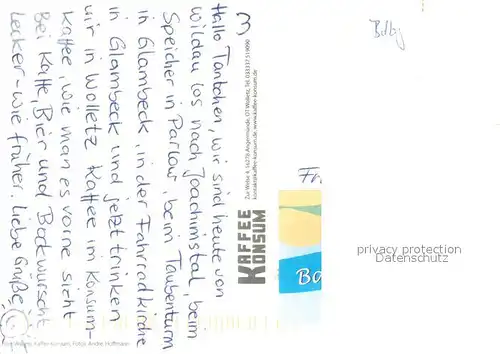 Hallo Tantchen, wir sind heute von
Wildau los nach Joachimstal, beim
Speicher in Parlow, beim Taubenturm
in Glambeck, in der Fahrradkirche
in Glambeck und jetzt trinken
wir in Wolletz Kaffee im Konsum-
Kaffee, wie man es vorne sieht
Bei Kaffe, Bier und Bockwurscht
Lecker - wie früher. Liebe Grüße
KAFFEE
KONSUM
Zur Welse 4, 16278 Angermünde, OT Wolletz, Tel. 033337 519090
kontakt@kaffee-konsum.de, www.kaffee-konsum.de
Wolletz, Kaffee-Konsum, Fotos: Andre, Hoffmann
Bdbg
privacy protection
Datenschutz